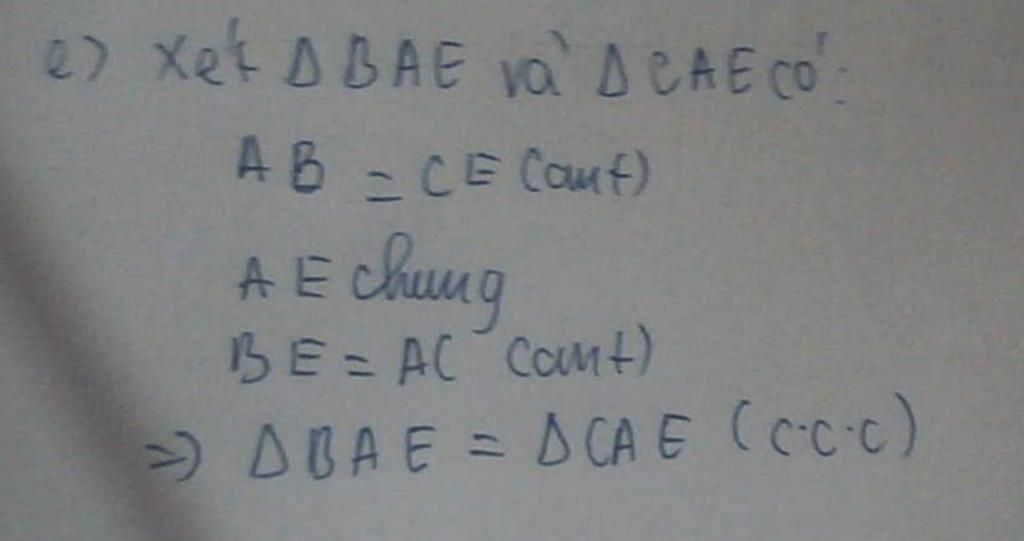 e) Xét Δ BAE và Δ CAE có:
AB = CE (cmt)
AE chung
BE = AC (cmt)
=> Δ BAE = Δ CAE (c.c.c)